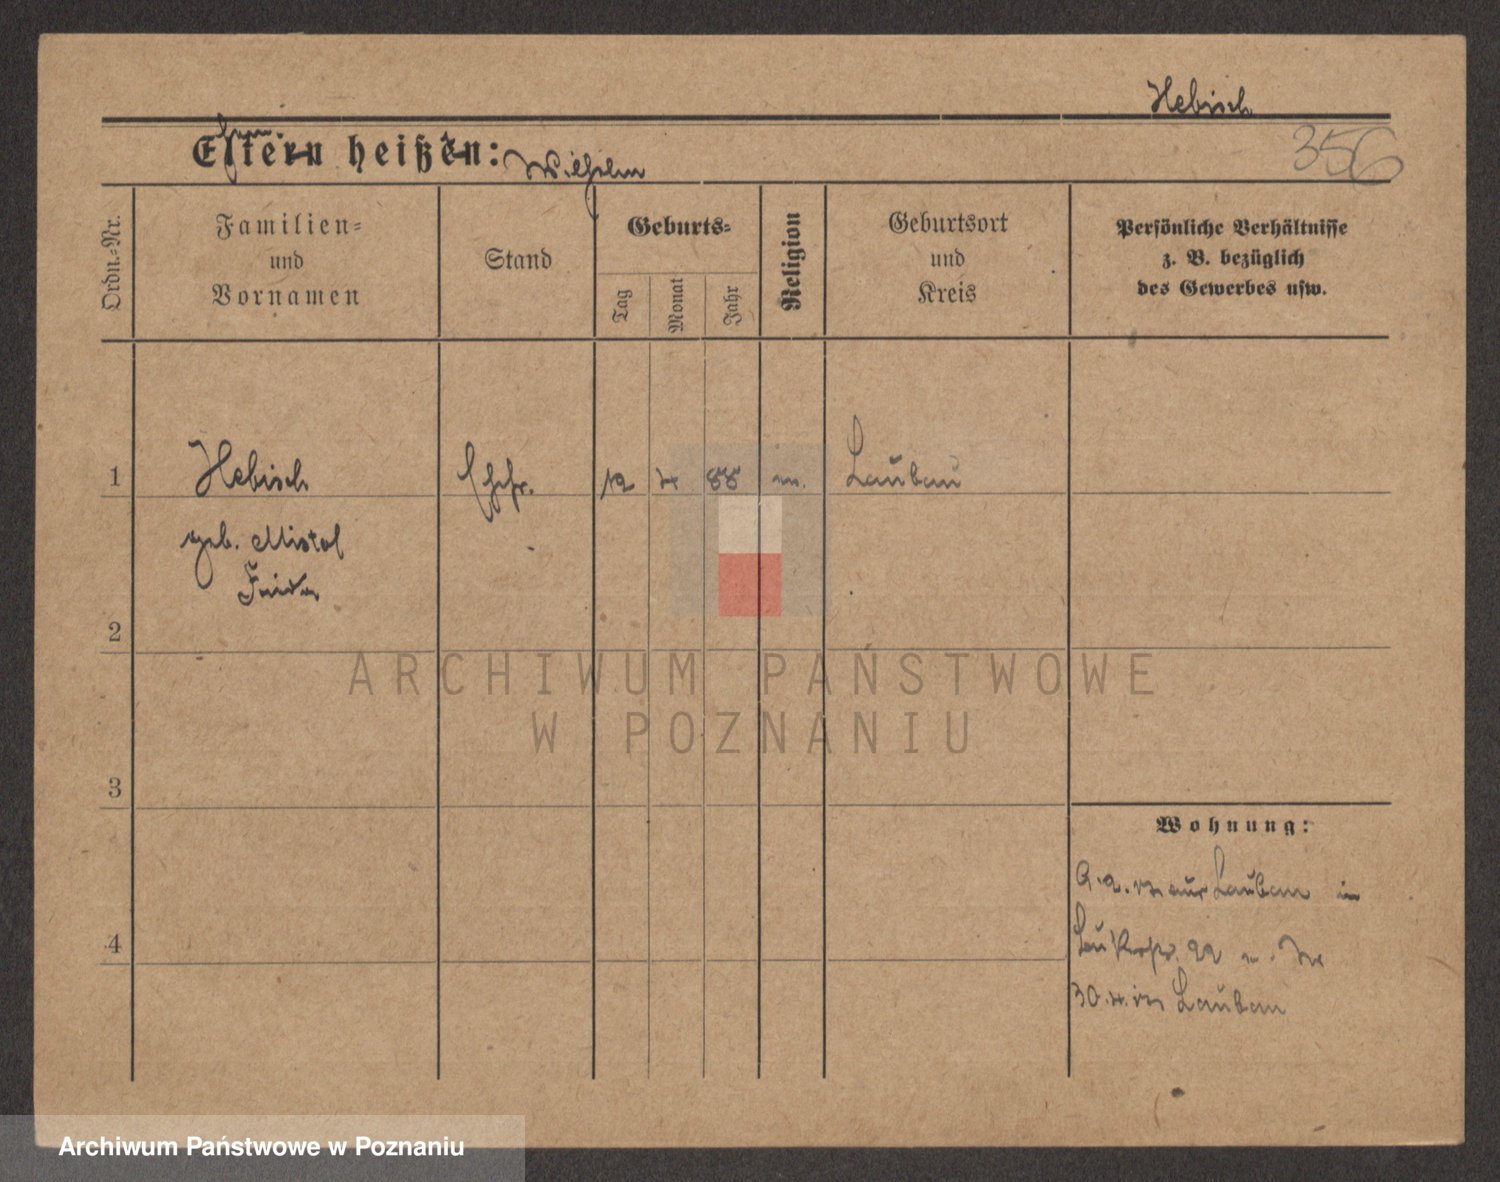 Hebisch
356
Eltern heißen: Wilhelm
Ordn.-Nr.
Familien-
und
Vornamen
Stand
Geburts-
Tag
Monat
Jahr
Religion
Geburtsort
und
Kreis
Persönliche Verhältnisse
z. B. bezüglich
des Gewerbes usw.
1
Hebisch
Ehefr.
12
4
88
Lauban
geb. Mistol
Frieda
2
ARCHIWUM PAŃSTWOWE
W POZNANIU
3
Wohnung:
aus Lauban in
4
22
30.4. Lauban
Archiwum Państwowe w Poznaniu